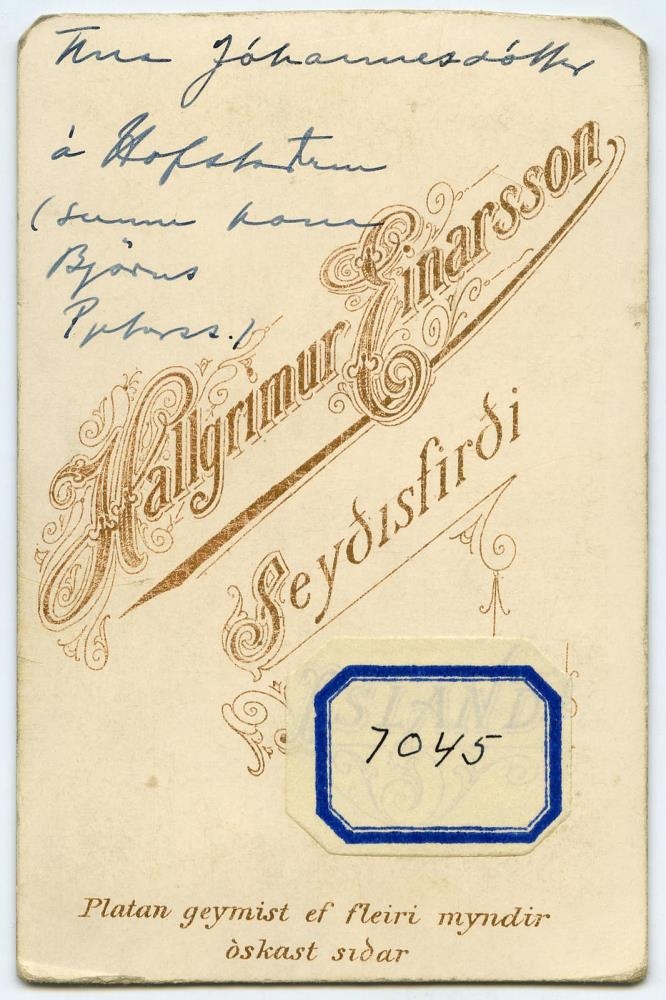 Jóhannesdóttir
á Hofströnd
(seinni kona
Björns
Hallgrimur Einarsson
Seyðisfirði
ISLAND
7045
Platan geymist ef fleiri myndir
òskast siðar